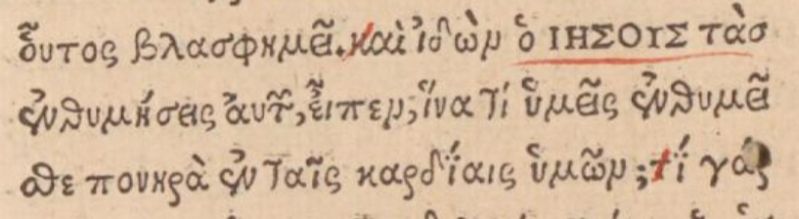 οὗτος βλασφημεῖ. καὶ ἰδὼν ὁ ΙΗΣΟΥΣ τὰσ
ἐνθυμήσεις ἀυτῶν, εἶπεν, ἵνα τί ὑμεῖς ἐνθυμεῖ
σθε πονηρὰ ἐν ταῖς καρδίαις ὑμῶν; τί γάρ